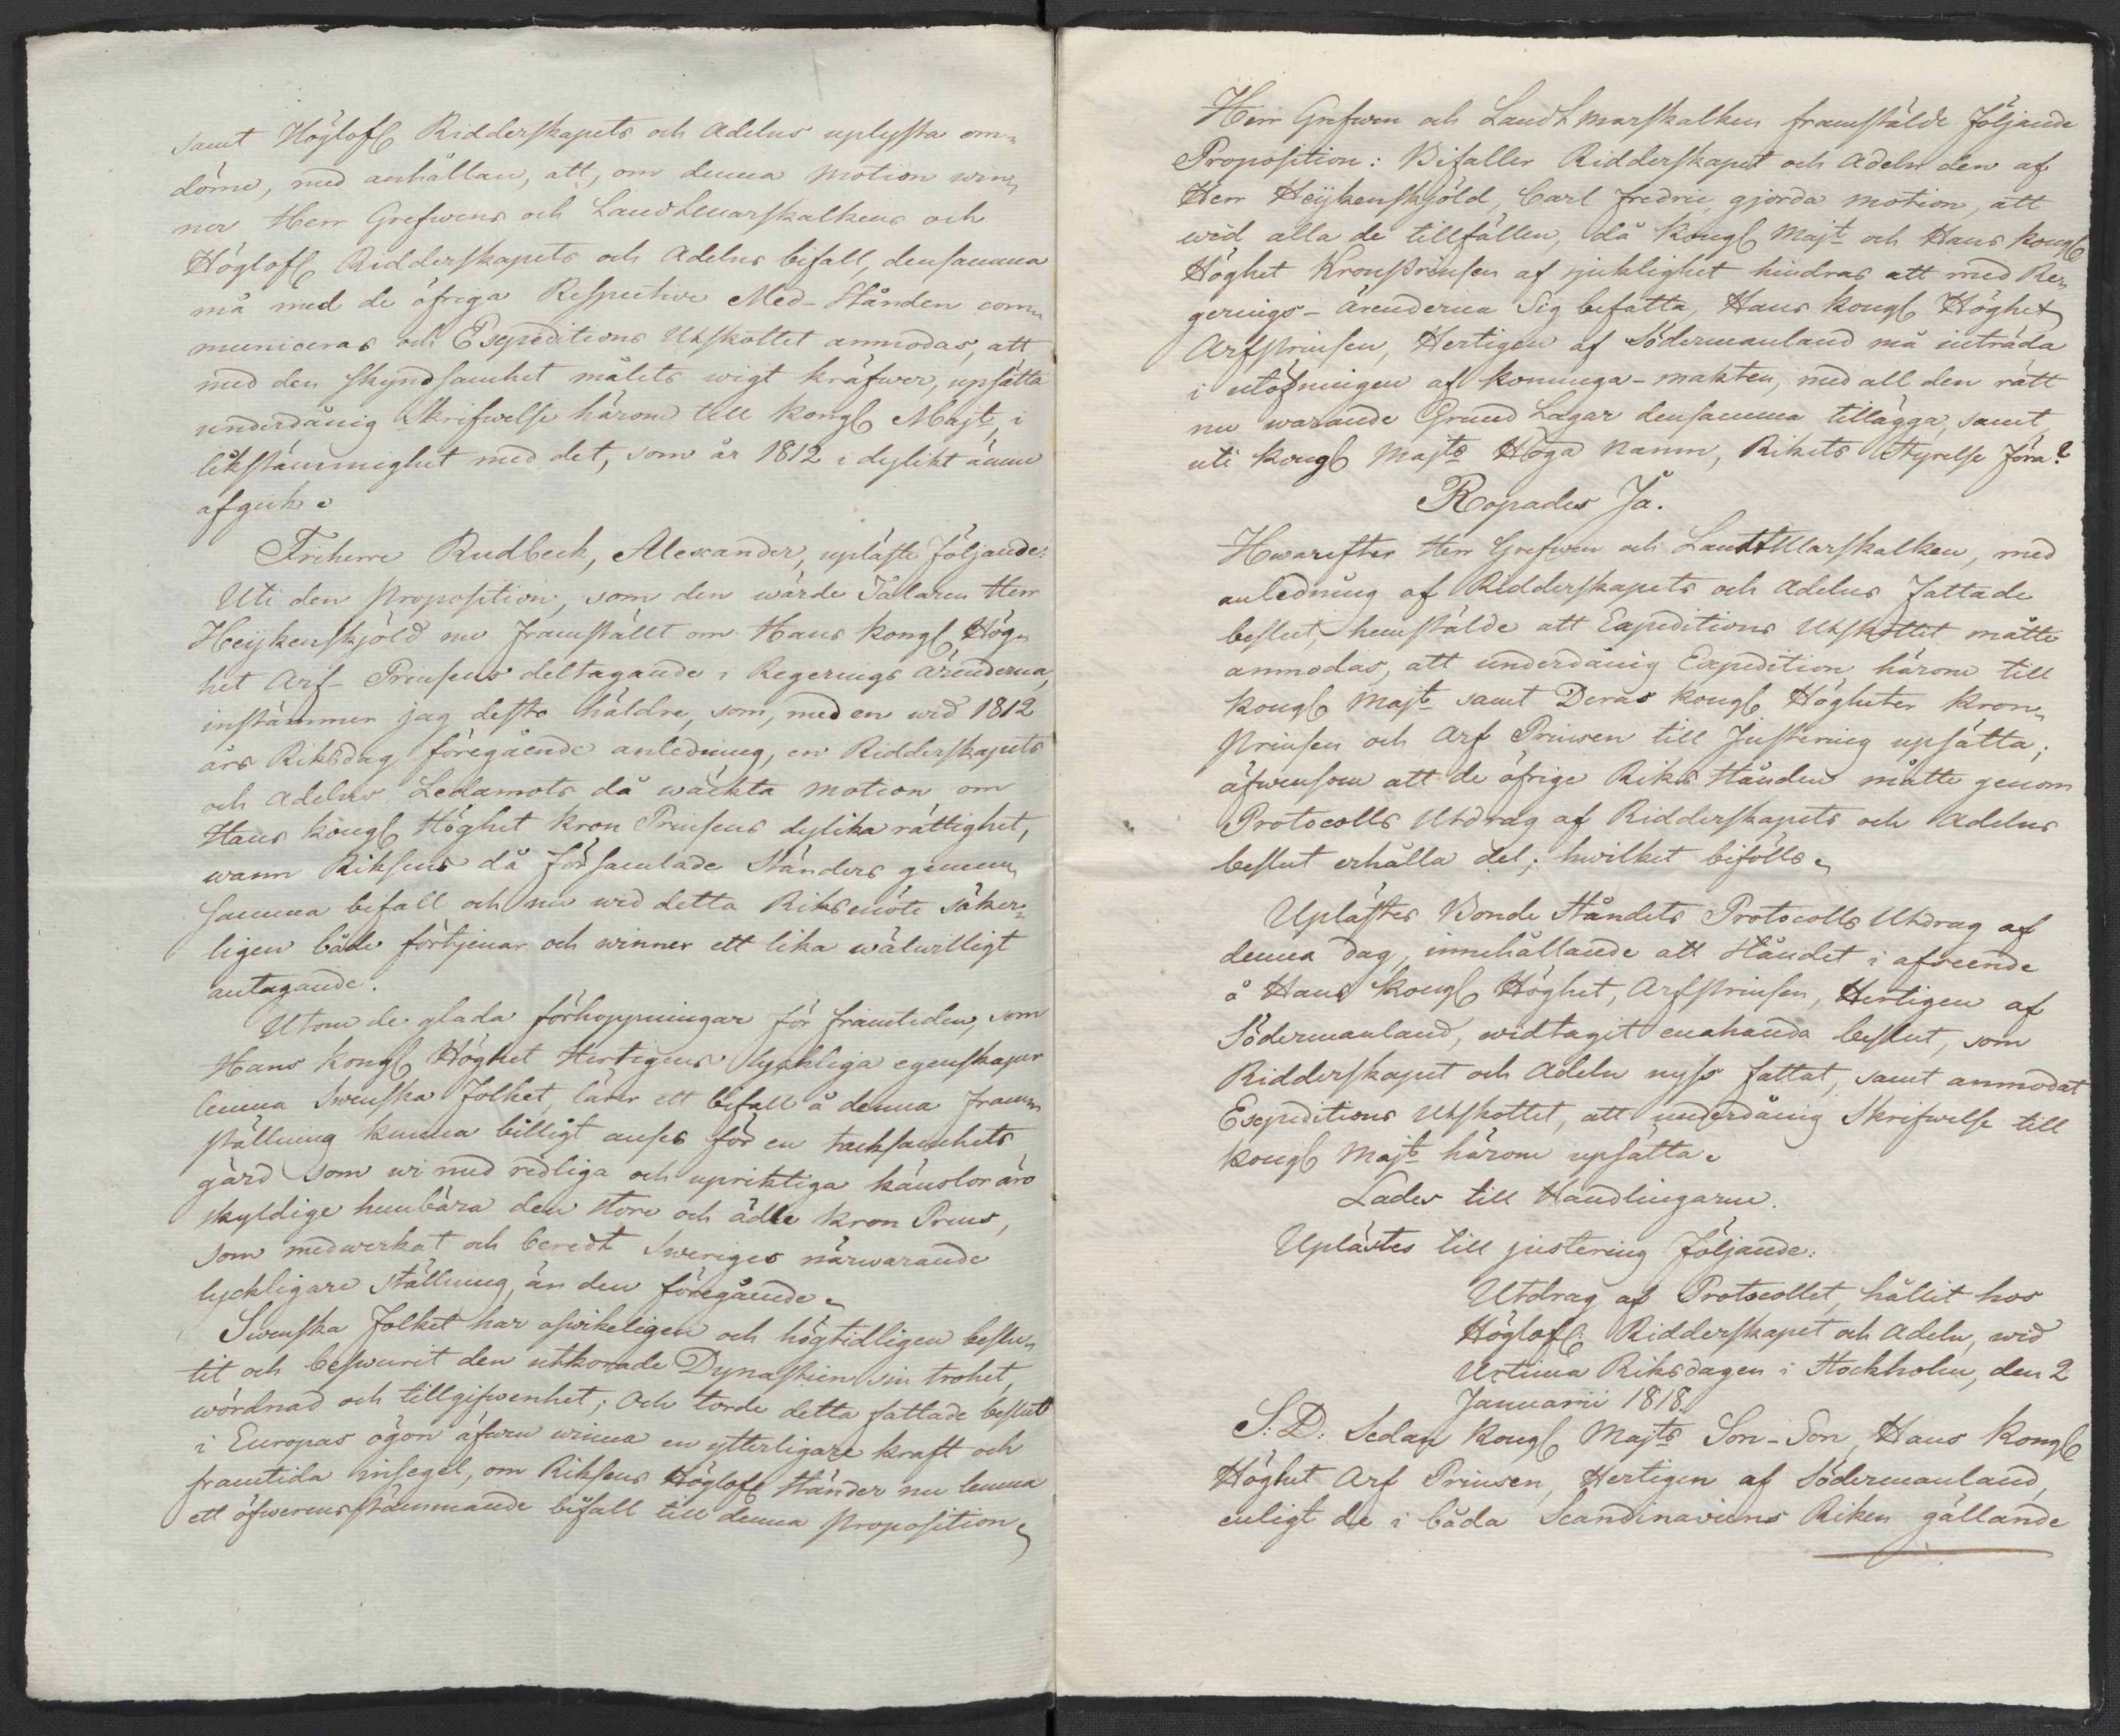 samt Höglofl Ridderskapets och Adelns uplysta om-
döme, med anhållan, att, om denna motion win-
ner Herr Grefwens och Landtmarskalkens och
Höglofl Ridderskapets och Adelns bifall, densamma
må med de öfriga Respective Med-Stånden com-
municeras och Expeditions Utskottet anmodas, att
med den skyndsamhet målets wigt kräfwer, upsätta
underdånig skrifwelse härom till Kongl Majt, i
likstämmighet med det, som år 1812 i dylikt ämne
afgick.
Friherre Rudbeck, Alexander, upläste följande:
Uti den proposition, som den wärde Talaren Herr
Heijkenskjöld nu framställt om Hans Kongl Hög-
het Arf-Prinsens deltagande i Regerings ärenderna,
instämmer jag desto häldre, som, med en wid 1812
års Riksdag föregående anledning, en Ridderskapets
och Adelns Ledamots då wäckta motion om
Hans Kongl Höghet Kron Prinsens dylika rättighet,
wann Riksens då församlade Ständers gemen-
samma bifall och nu wid detta Riksmöte säker-
ligen både förtjenar och winner ett lika wälwilligt
antagande.
Utom de glada förhoppningar för framtiden, som
Hans Kongl Höghet Hertigens lyckliga egenskaper
lemna Swenska Folket, lärer ett bifall å denna fram-
ställning kunna billigt anses för en tacksamhets
gärd som wi med redliga och upriktiga känslor äro
skyldige hembära den store och ädle Kron Prins,
som medwerkat och beredt Sweriges närwarande
lyckligare ställning, än den föregående.
Swenska Folket har oswikeligen och högtidligen beslu-
tit och beswurit den utkorade Dynastien sin trohet,
wördnad och tillgifwenhet; och torde detta fattade beslut
i Europas ögon äfwen winna en ytterligare kraft och
framtida insegel, om Riksens Höglofl Ständer nu lemna
ett öfwerensstämmande bifall till denna proposition.
Herr Grefwen och Landtmarskalken framstälde följande
Proposition: Bifaller Ridderskapet och Adeln den af
Herr Heijkenskjöld, Carl Fredric, gjorda motion, att
wid alla de tillfällen, då Kongl Majt och Hans Kongl
Höghet Kronprinsen af sjuklighet hindras att med Re-
gerings-ärenderna Sig befatta, Hans Kongl Höghet
Arfprinsen, Hertigen af Södermanland må inträda
i utöfningen af konunga-makten, med all den rätt
nu warande Grund Lagar densamma tillägga, samt
uti Kongl Majts Höga namn, Rikets Styrelse föra?
Ropades Ja.
Hwarefter Herr Grefwen och LandtMarskalken, med
anledning af Ridderskapets och Adelns fattade
beslut, hemstälde att Expeditions Utskottet måtte
anmodas, att underdånig Expedition härom till
Kongl Majt samt Deras Kongl Högheter Kron-
prinsen och Arf Prinsen till Justering upsätta;
äfwensom att de öfrige Riks Stånden måtte genom
Protocolls Utdrag af Ridderskapets och Adelns
beslut erhålla del; hwilket bifölls.
Uplästes Bonde Ståndets Protocolls Utdrag af
denna dag, innehållande att Ståndet i afseende
å Hans Kongl Höghet, Arfprinsen, Hertigen af
Södermanland, widtagit enahanda beslut, som
Ridderskapet och Adeln nyss fattat, samt anmodat
Expeditions Utskottet, att underdånig Skrifwelse till
Kongl Majt härom upsätta.
Lades till Handlingarne.
Uplästes till justering följande:
Utdrag af Protocollet, hållit hos
Höglofl. Ridderskapet och Adeln, wid
Urtima Riksdagen i Stockholm, den 2
Januarii 1818.
S:D: Sedan Kongl Majts Son-Son, Hans Kongl
Höghet Arf Prinsen, Hertigen af Södermanland,
enligt de i båda Scandinaviens Riken gällande